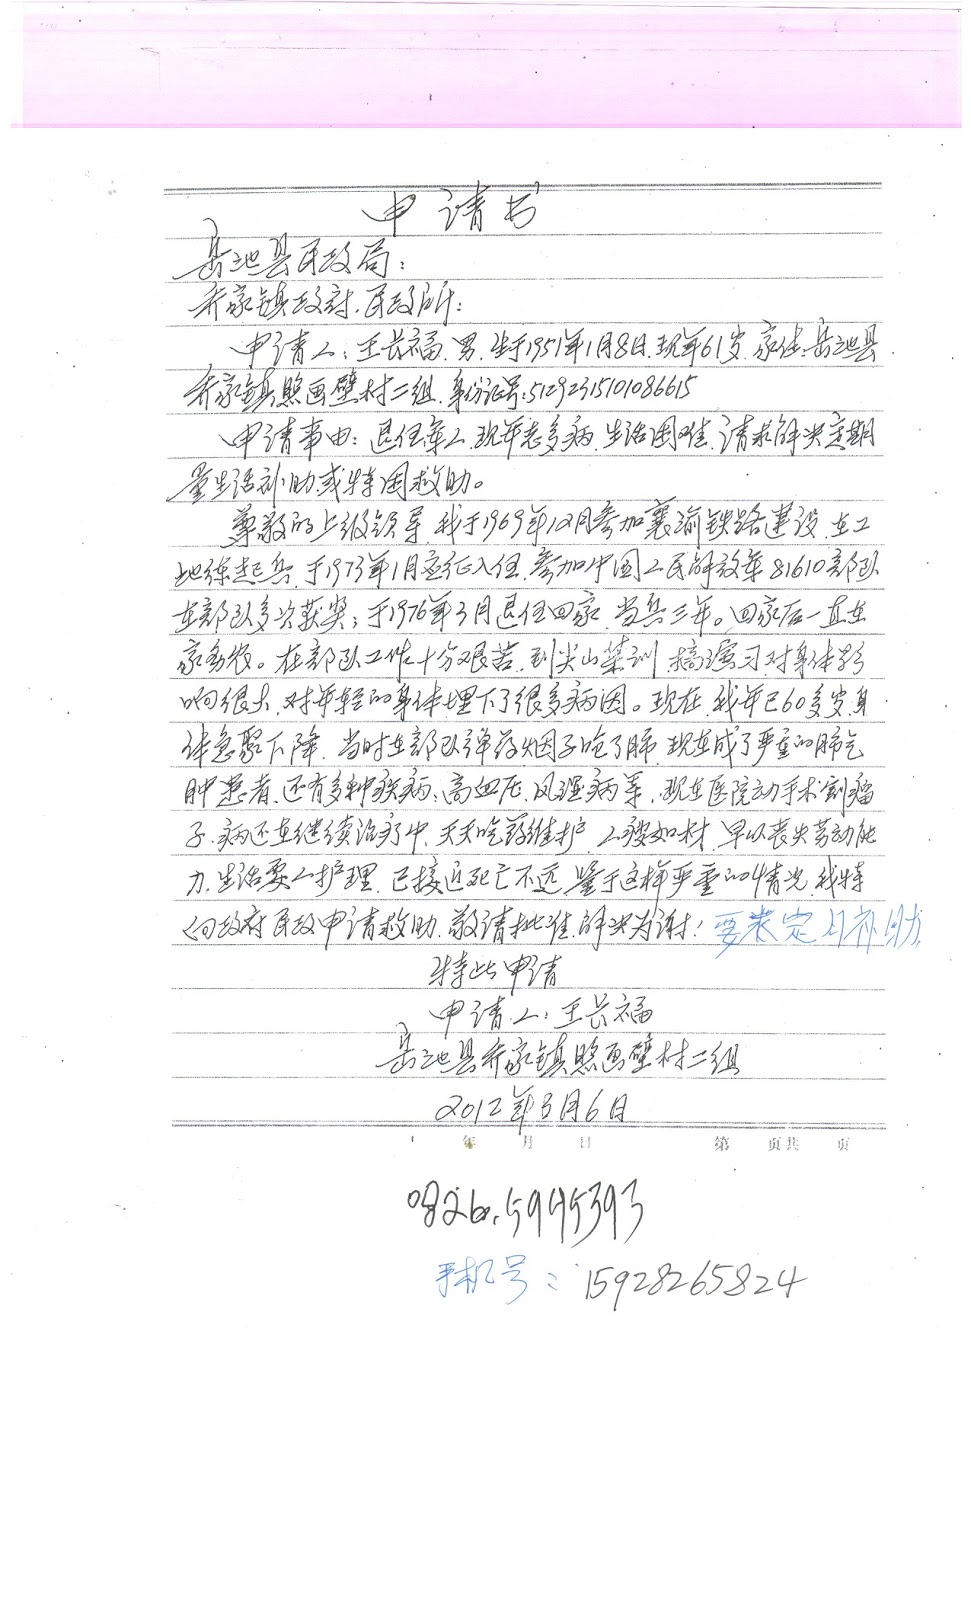 申请书
岳池县民政局：
乔家镇政府.民政所：
申请人：王长福.男.生于1951年1月8日.现年61岁.家住:岳池县
乔家镇照画壁村二组.身份证号:512923195101086615
申请事由：退伍军人.现年老多病.生活困难.请求解决定期
量生活补助或特困救助。
尊敬的上级领导.我于1969年12月参加襄渝铁路建设.在工
地练起兵.于1973年1月应征入伍.参加中国人民解放军81610部队
在部队多次获奖；于1976年3月退伍回家.当兵三年。回家后一直在
家务农。在部队工作十分艰苦.到尖山集训.搞演习对身体影
响很大.对年轻的身体埋下了很多病因。现在.我年已60多岁.身
体急聚下降.当时在部队弹药烟子呛了肺.现在成了严重的肺气
肿患者.还有多种疾病:高血压.风湿病等.现在医院动手术割瘤
子.病还在继续治疗中.天天吃药维护.人瘦如材.早以丧失劳动能
力.生活要人护理.已接近死亡不远.鉴于这样严重的情况.我特
向政府民政申请救助.敬请批准.解决为谢！要求定月补助.
特此申请
申请人：王长福
岳池县乔家镇照画壁村二组
2012年3月6日
年 月 日 第 页共 页
0826.5945393
手机号：15928265824